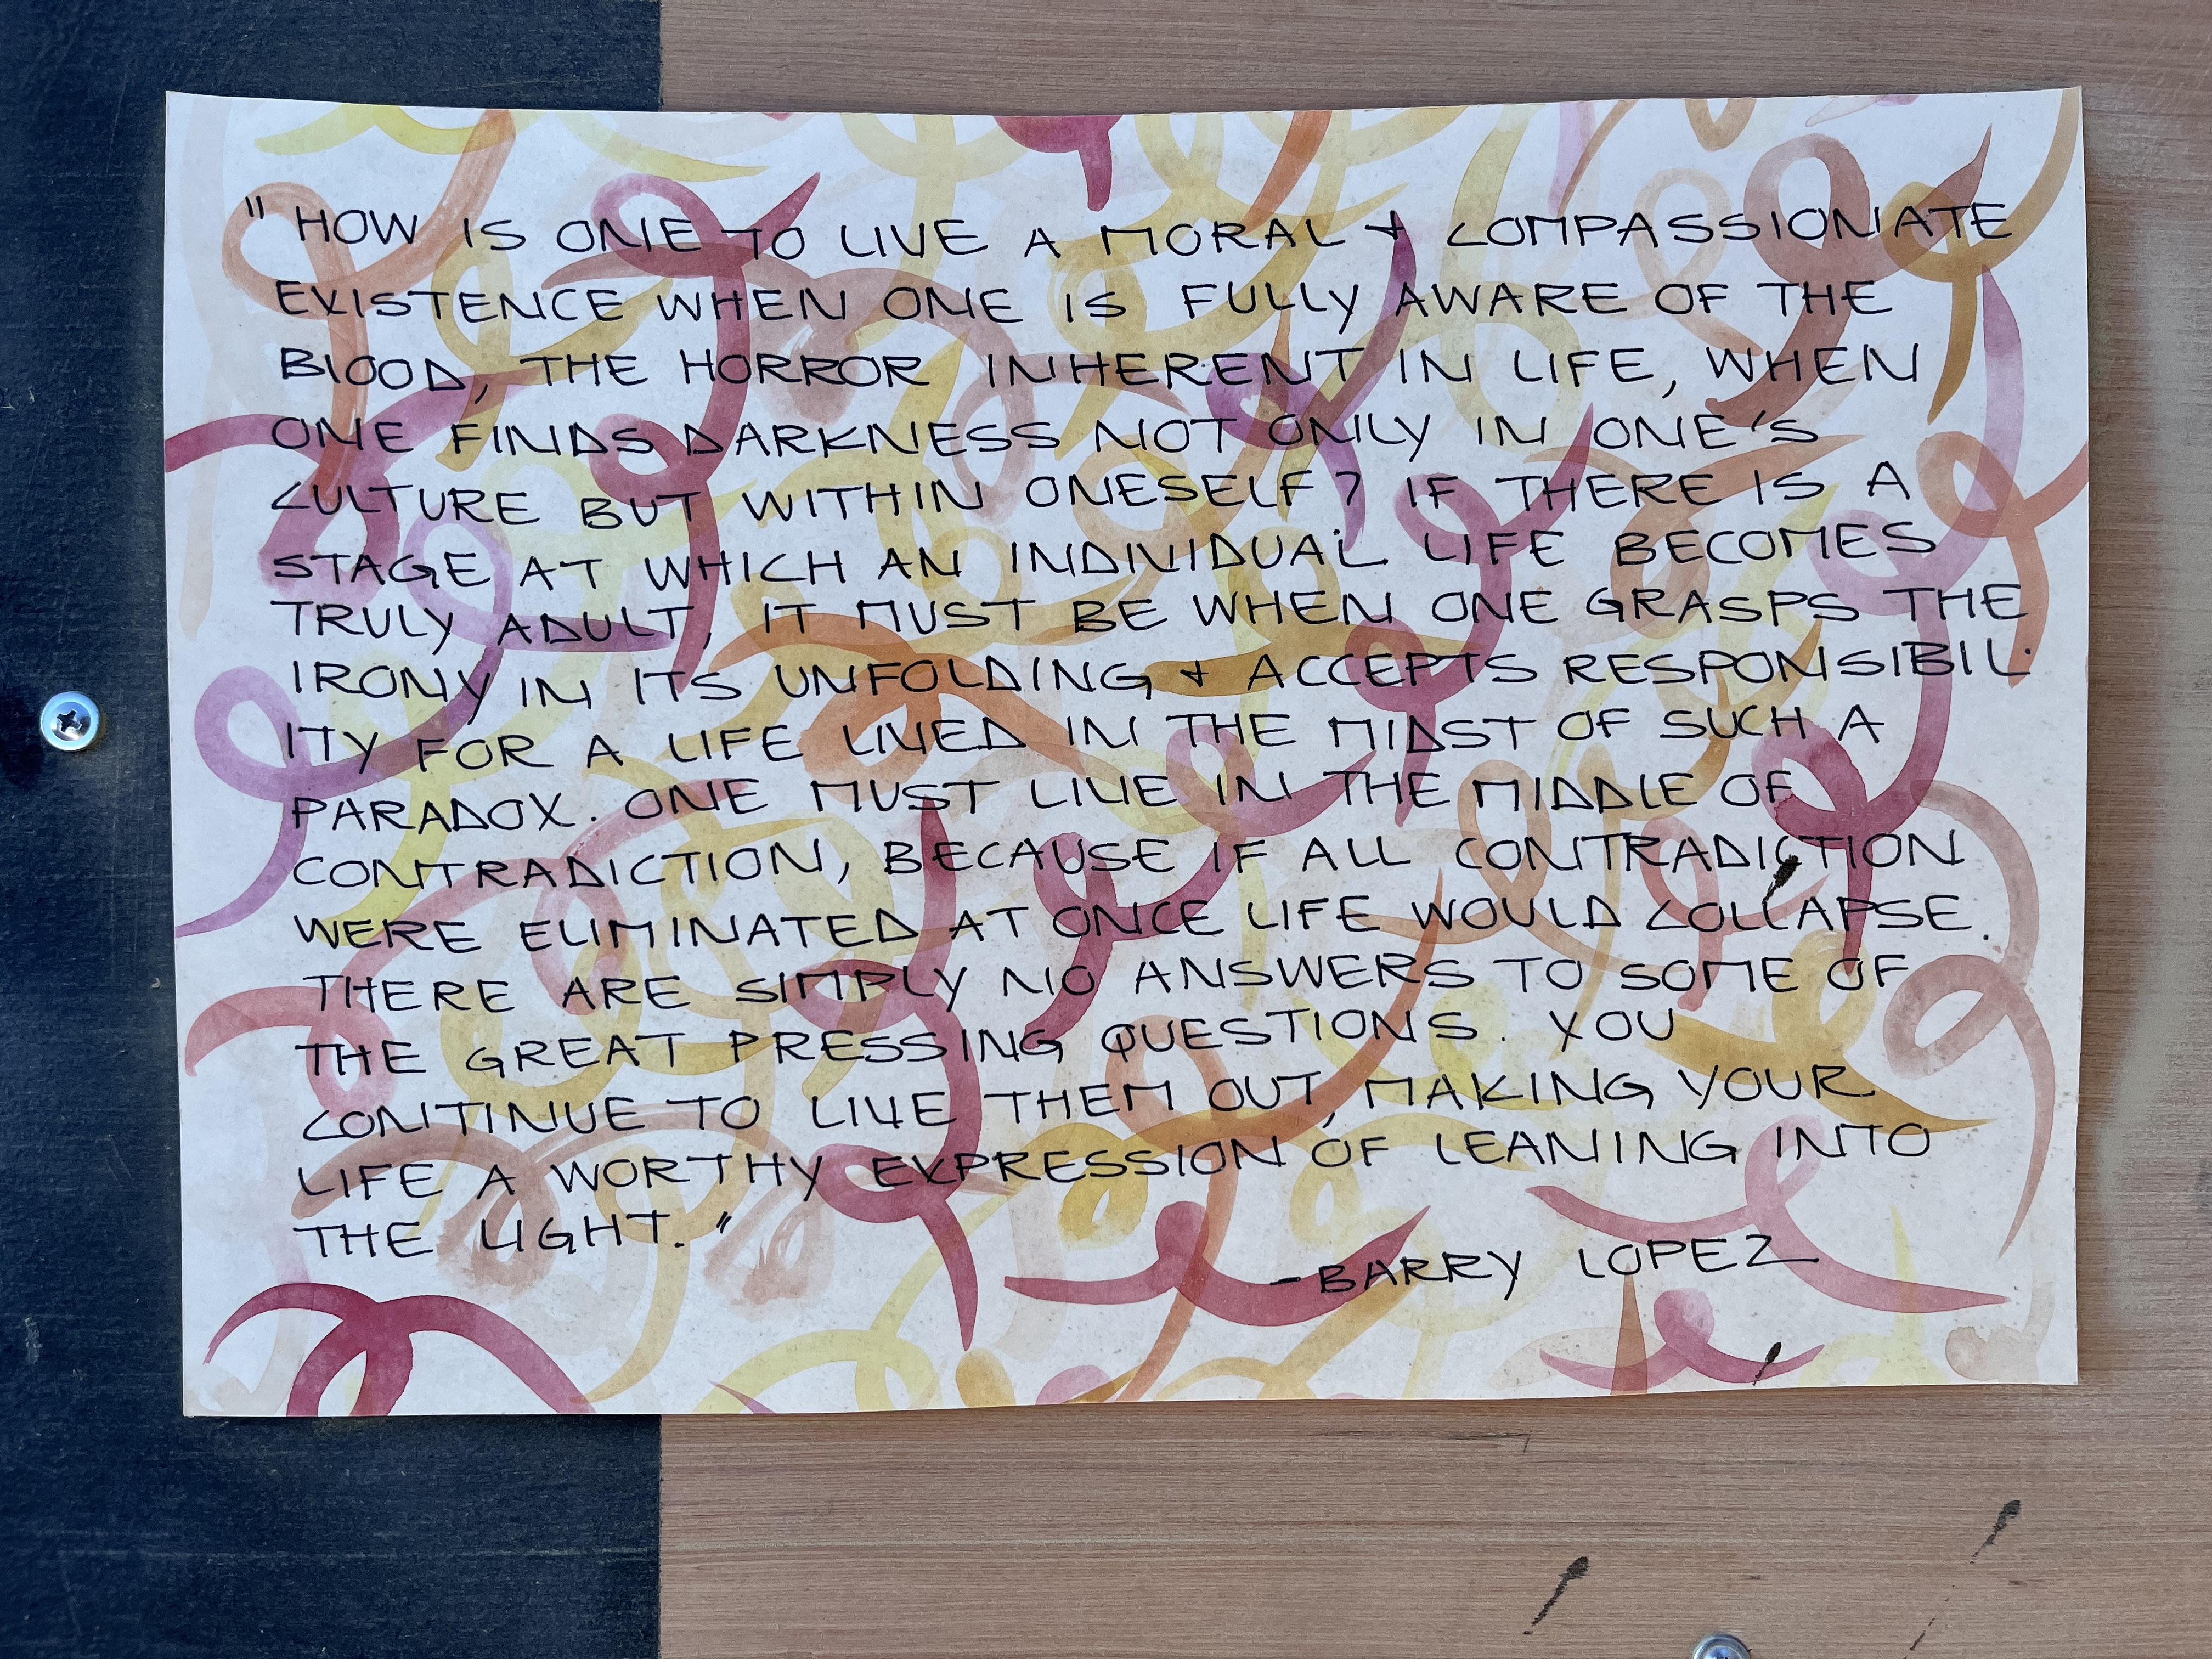 "HOW IS ONE TO LIVE A MORAL + COMPASSIONATE
EXISTENCE WHEN ONE IS FULLY AWARE OF THE
BLOOD, THE HORROR INHERENT IN LIFE, WHEN
ONE FINDS DARKNESS NOT ONLY IN ONE'S
CULTURE BUT WITHIN ONESELF? IF THERE IS A
STAGE AT WHICH AN INDIVIDUAL LIFE BECOMES
TRULY ADULT, IT MUST BE WHEN ONE GRASPS THE
IRONY IN ITS UNFOLDING + ACCEPTS RESPONSIBIL-
ITY FOR A LIFE LIVED IN THE MIDST OF SUCH A
PARADOX. ONE MUST LIVE IN THE MIDDLE OF
CONTRADICTION, BECAUSE IF ALL CONTRADICTION
WERE ELIMINATED AT ONCE LIFE WOULD COLLAPSE.
THERE ARE SIMPLY NO ANSWERS TO SOME OF
THE GREAT PRESSING QUESTIONS. YOU
CONTINUE TO LIVE THEM OUT, MAKING YOUR
LIFE A WORTHY EXPRESSION OF LEANING INTO
THE LIGHT."
- BARRY LOPEZ